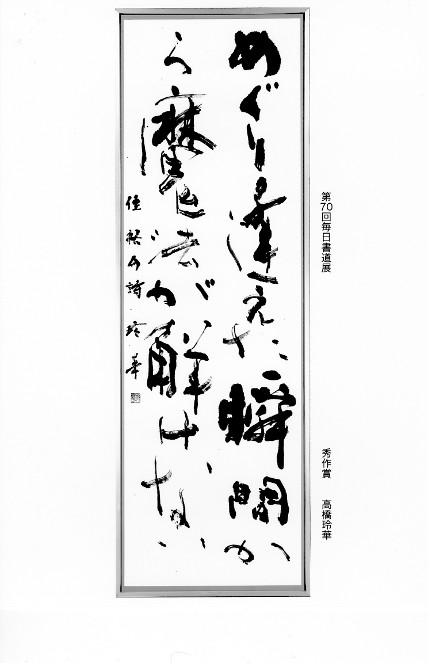 第70回毎日書道展
秀作賞 高橋玲華
めぐり逢えた瞬間か
ら魔法が解けない
玲華